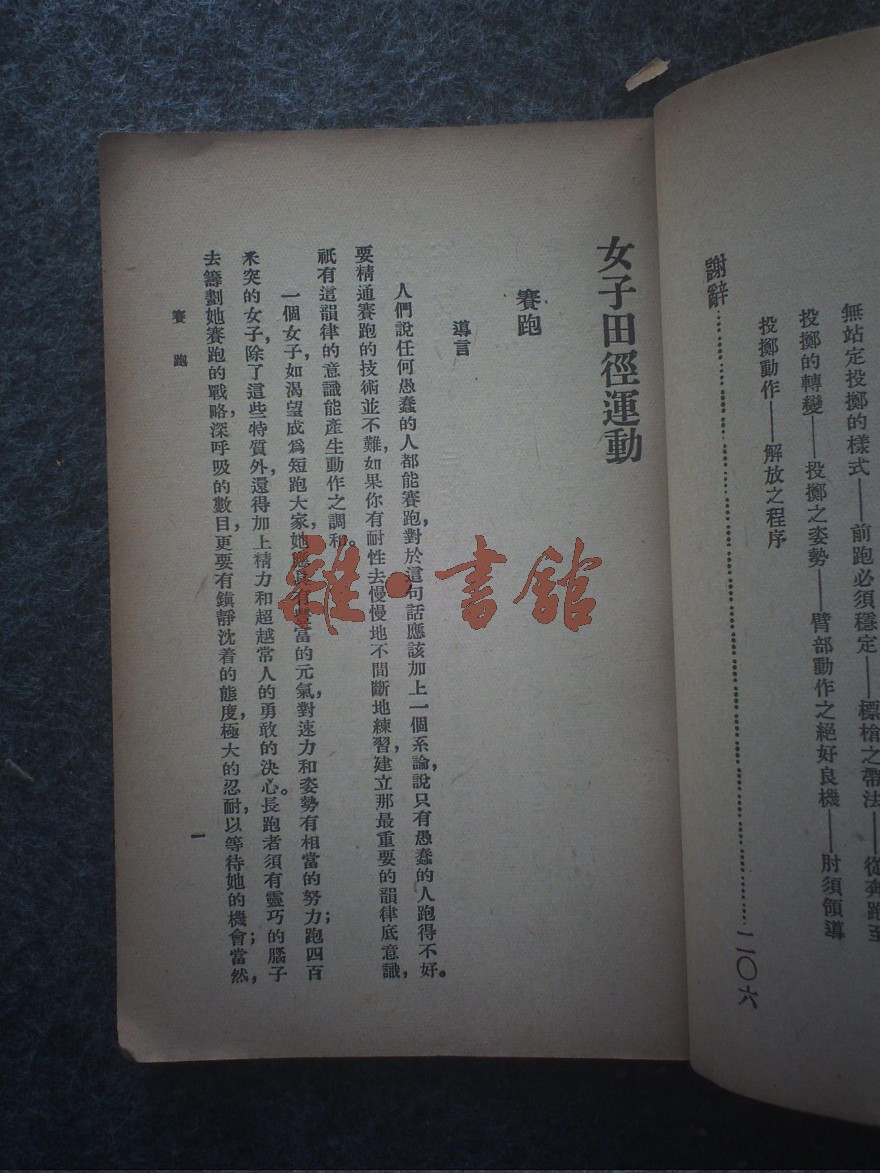 無站定投擲的樣式——前跑必須穩定——標槍之帶法——從奔跑至
投擲的轉變——投擲之姿勢——臂部動作之絕好良機——肘須領導
投擲動作——解放之程序
謝辭……………………………………二〇六
女子田徑運動
賽跑
導言
人們說任何愚蠢的人都能賽跑,對於這句話應該加上一個系論,說只有愚蠢的人跑得不好。
要精通賽跑的技術並不難,如果你有耐性去慢慢地不間斷地練習,建立那最重要的韻律底意識,
祇有這韻律的意識能產生動作之調和。
一個女子,如渴望成爲短跑大家,她應具有豐富的元氣,對速力和姿勢有相當的努力;跑四百
米突的女子,除了這些特質外,還得加上精力和超越常人的勇敢的決心。長跑者須有靈巧的腦子
去籌劃她賽跑的戰略,深呼吸的數目,更要有鎮靜沈着的態度,極大的忍耐,以等待她的機會;當然,
賽跑
一
雜·書館